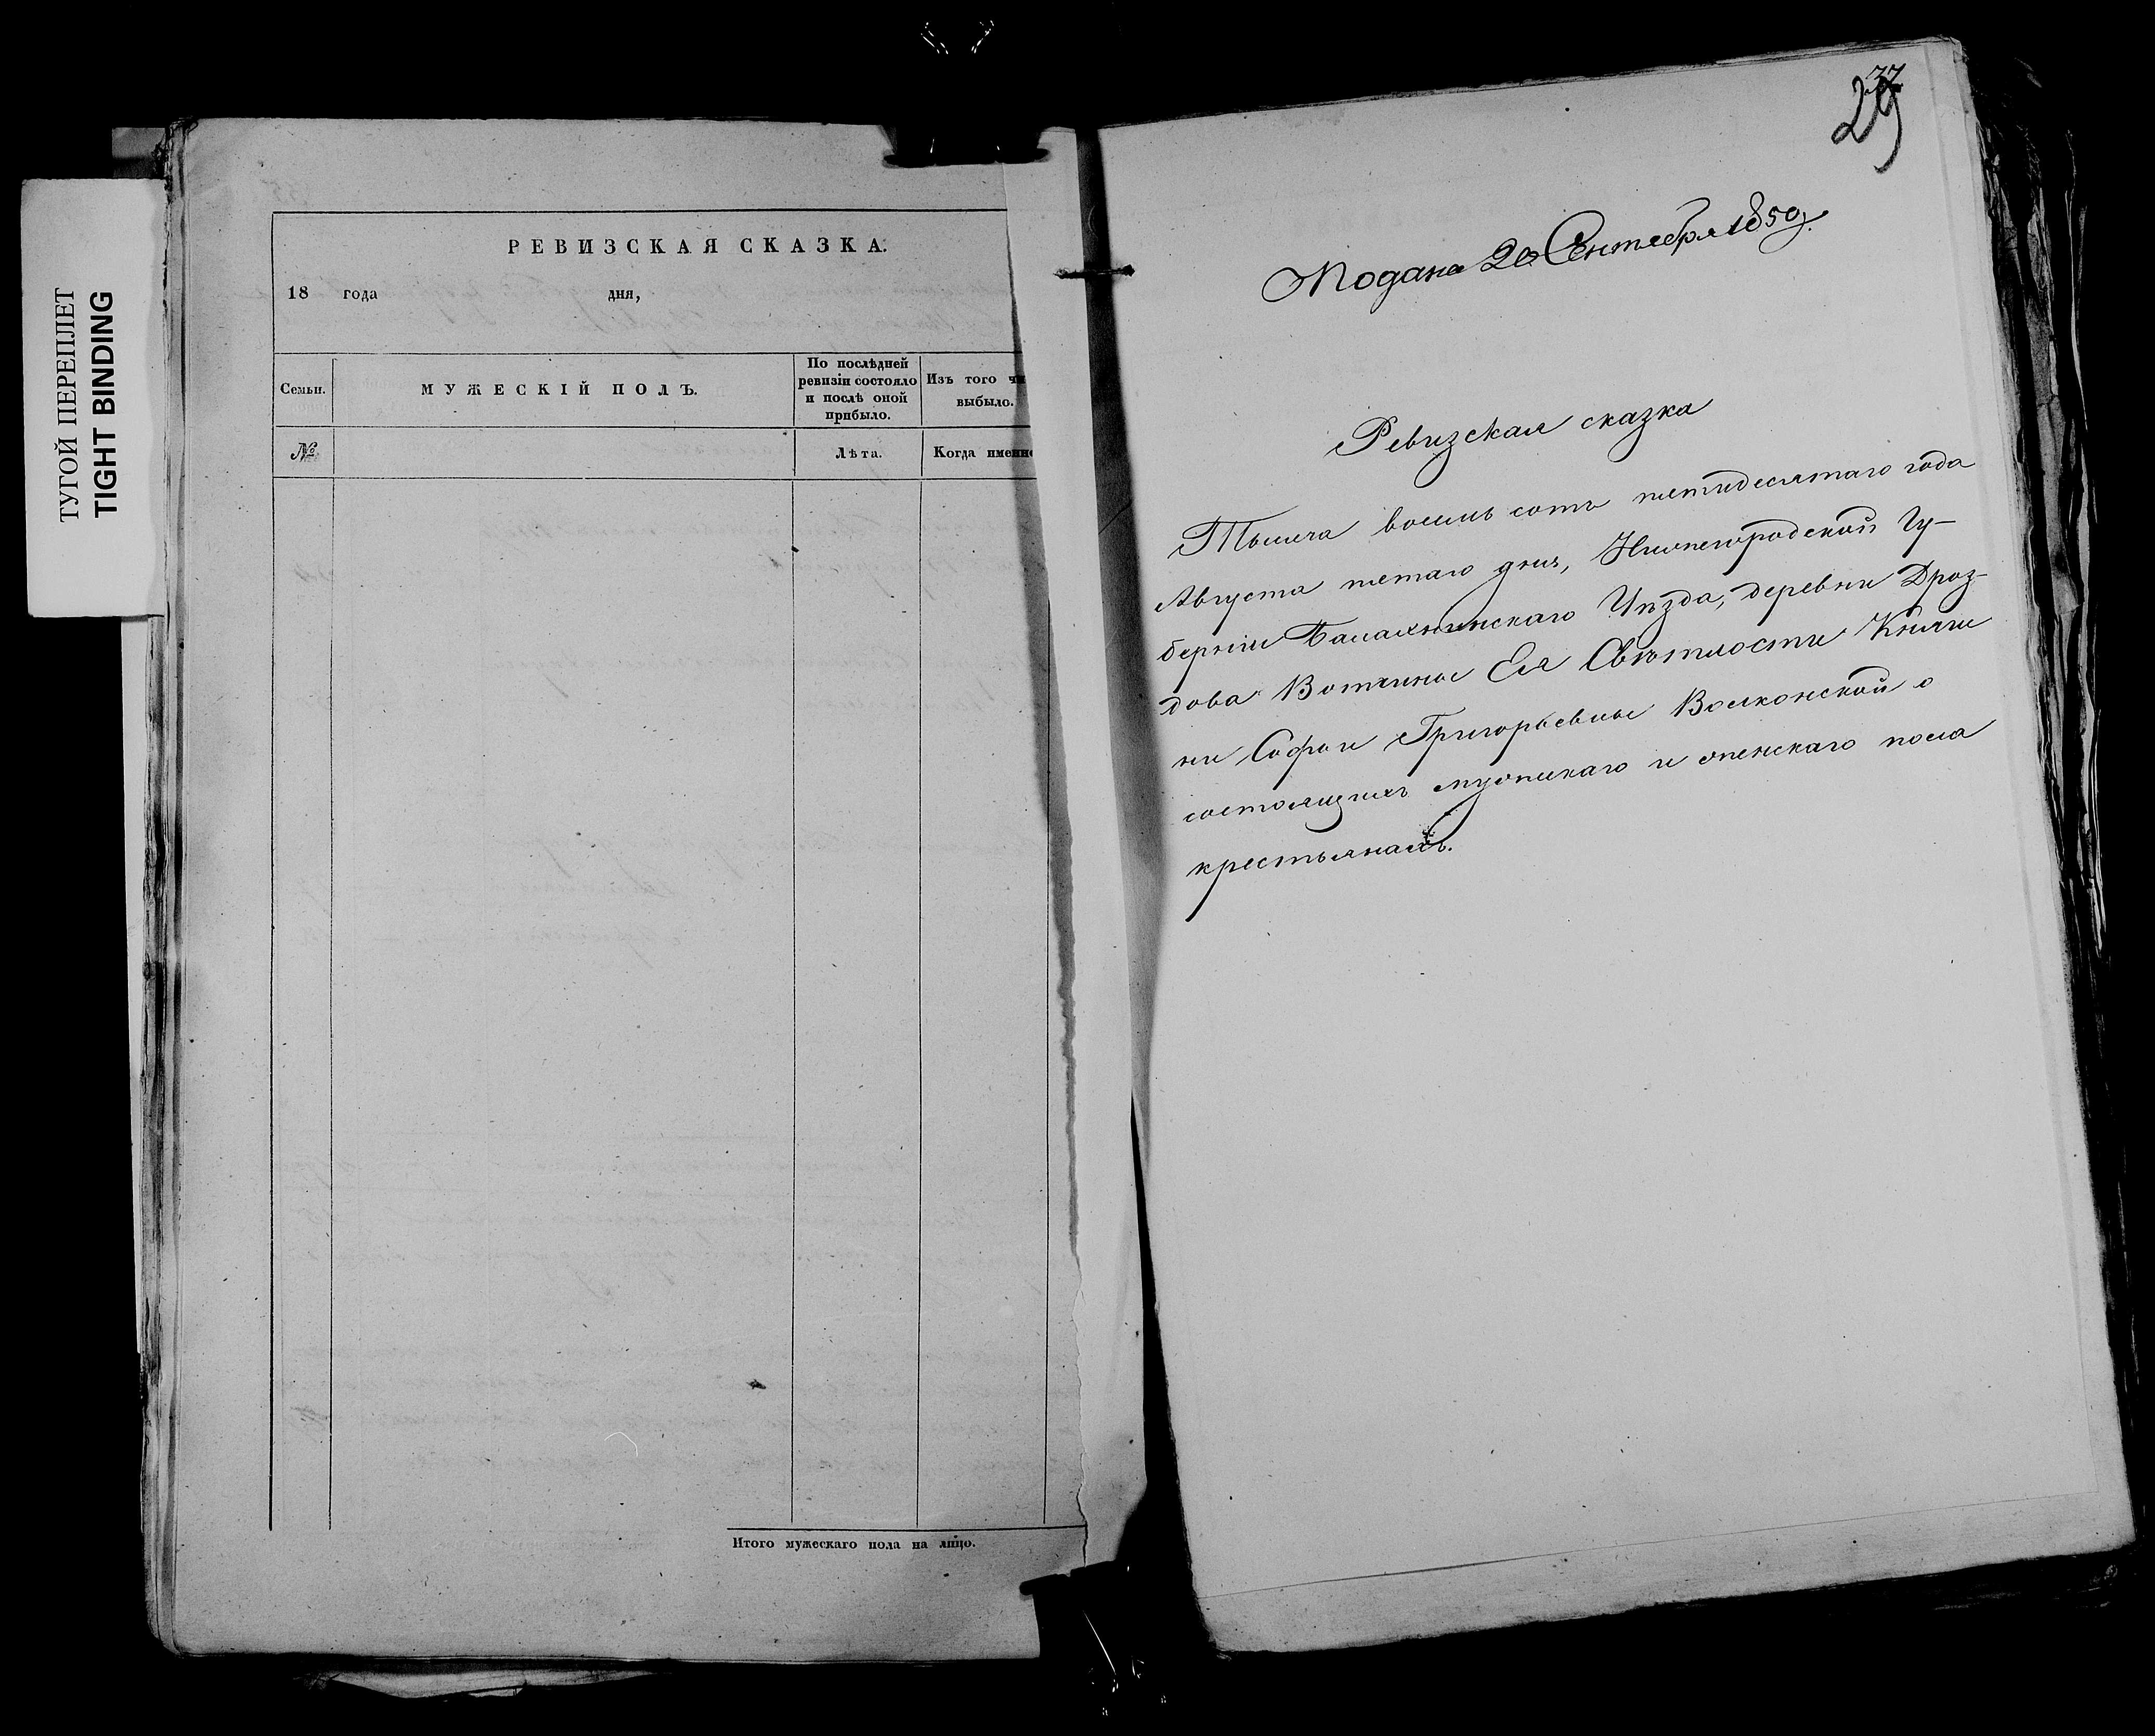 ТУГОЙ ПЕРЕПЛЕТ
TIGHT BINDING
РЕВИЗСКАЯ СКАЗКА.
18 года дня,
Семьи.
МУЖЕСКІЙ ПОЛЪ.
По послѣдней
ревизіи состояло
и послѣ оной
прибыло.
Изъ того чи
выбыло.
№
Лѣта.
Когда именно
Итого мужескаго пола на лицо.
37
29
Подана 20 Сентября 1850 г.
Ревизская сказка
Тысяча восемь сотъ пятидесятаго года
Августа пятаго дня, Нижегородской Гу-
берніи Балахнинскаго Уѣзда, деревни Дроз-
дова Вотчины Ея Свѣтлости Княги
ни Софьи Григорьевны Волконской о
состоящихъ мужскаго и женскаго пола
крестьянахъ.